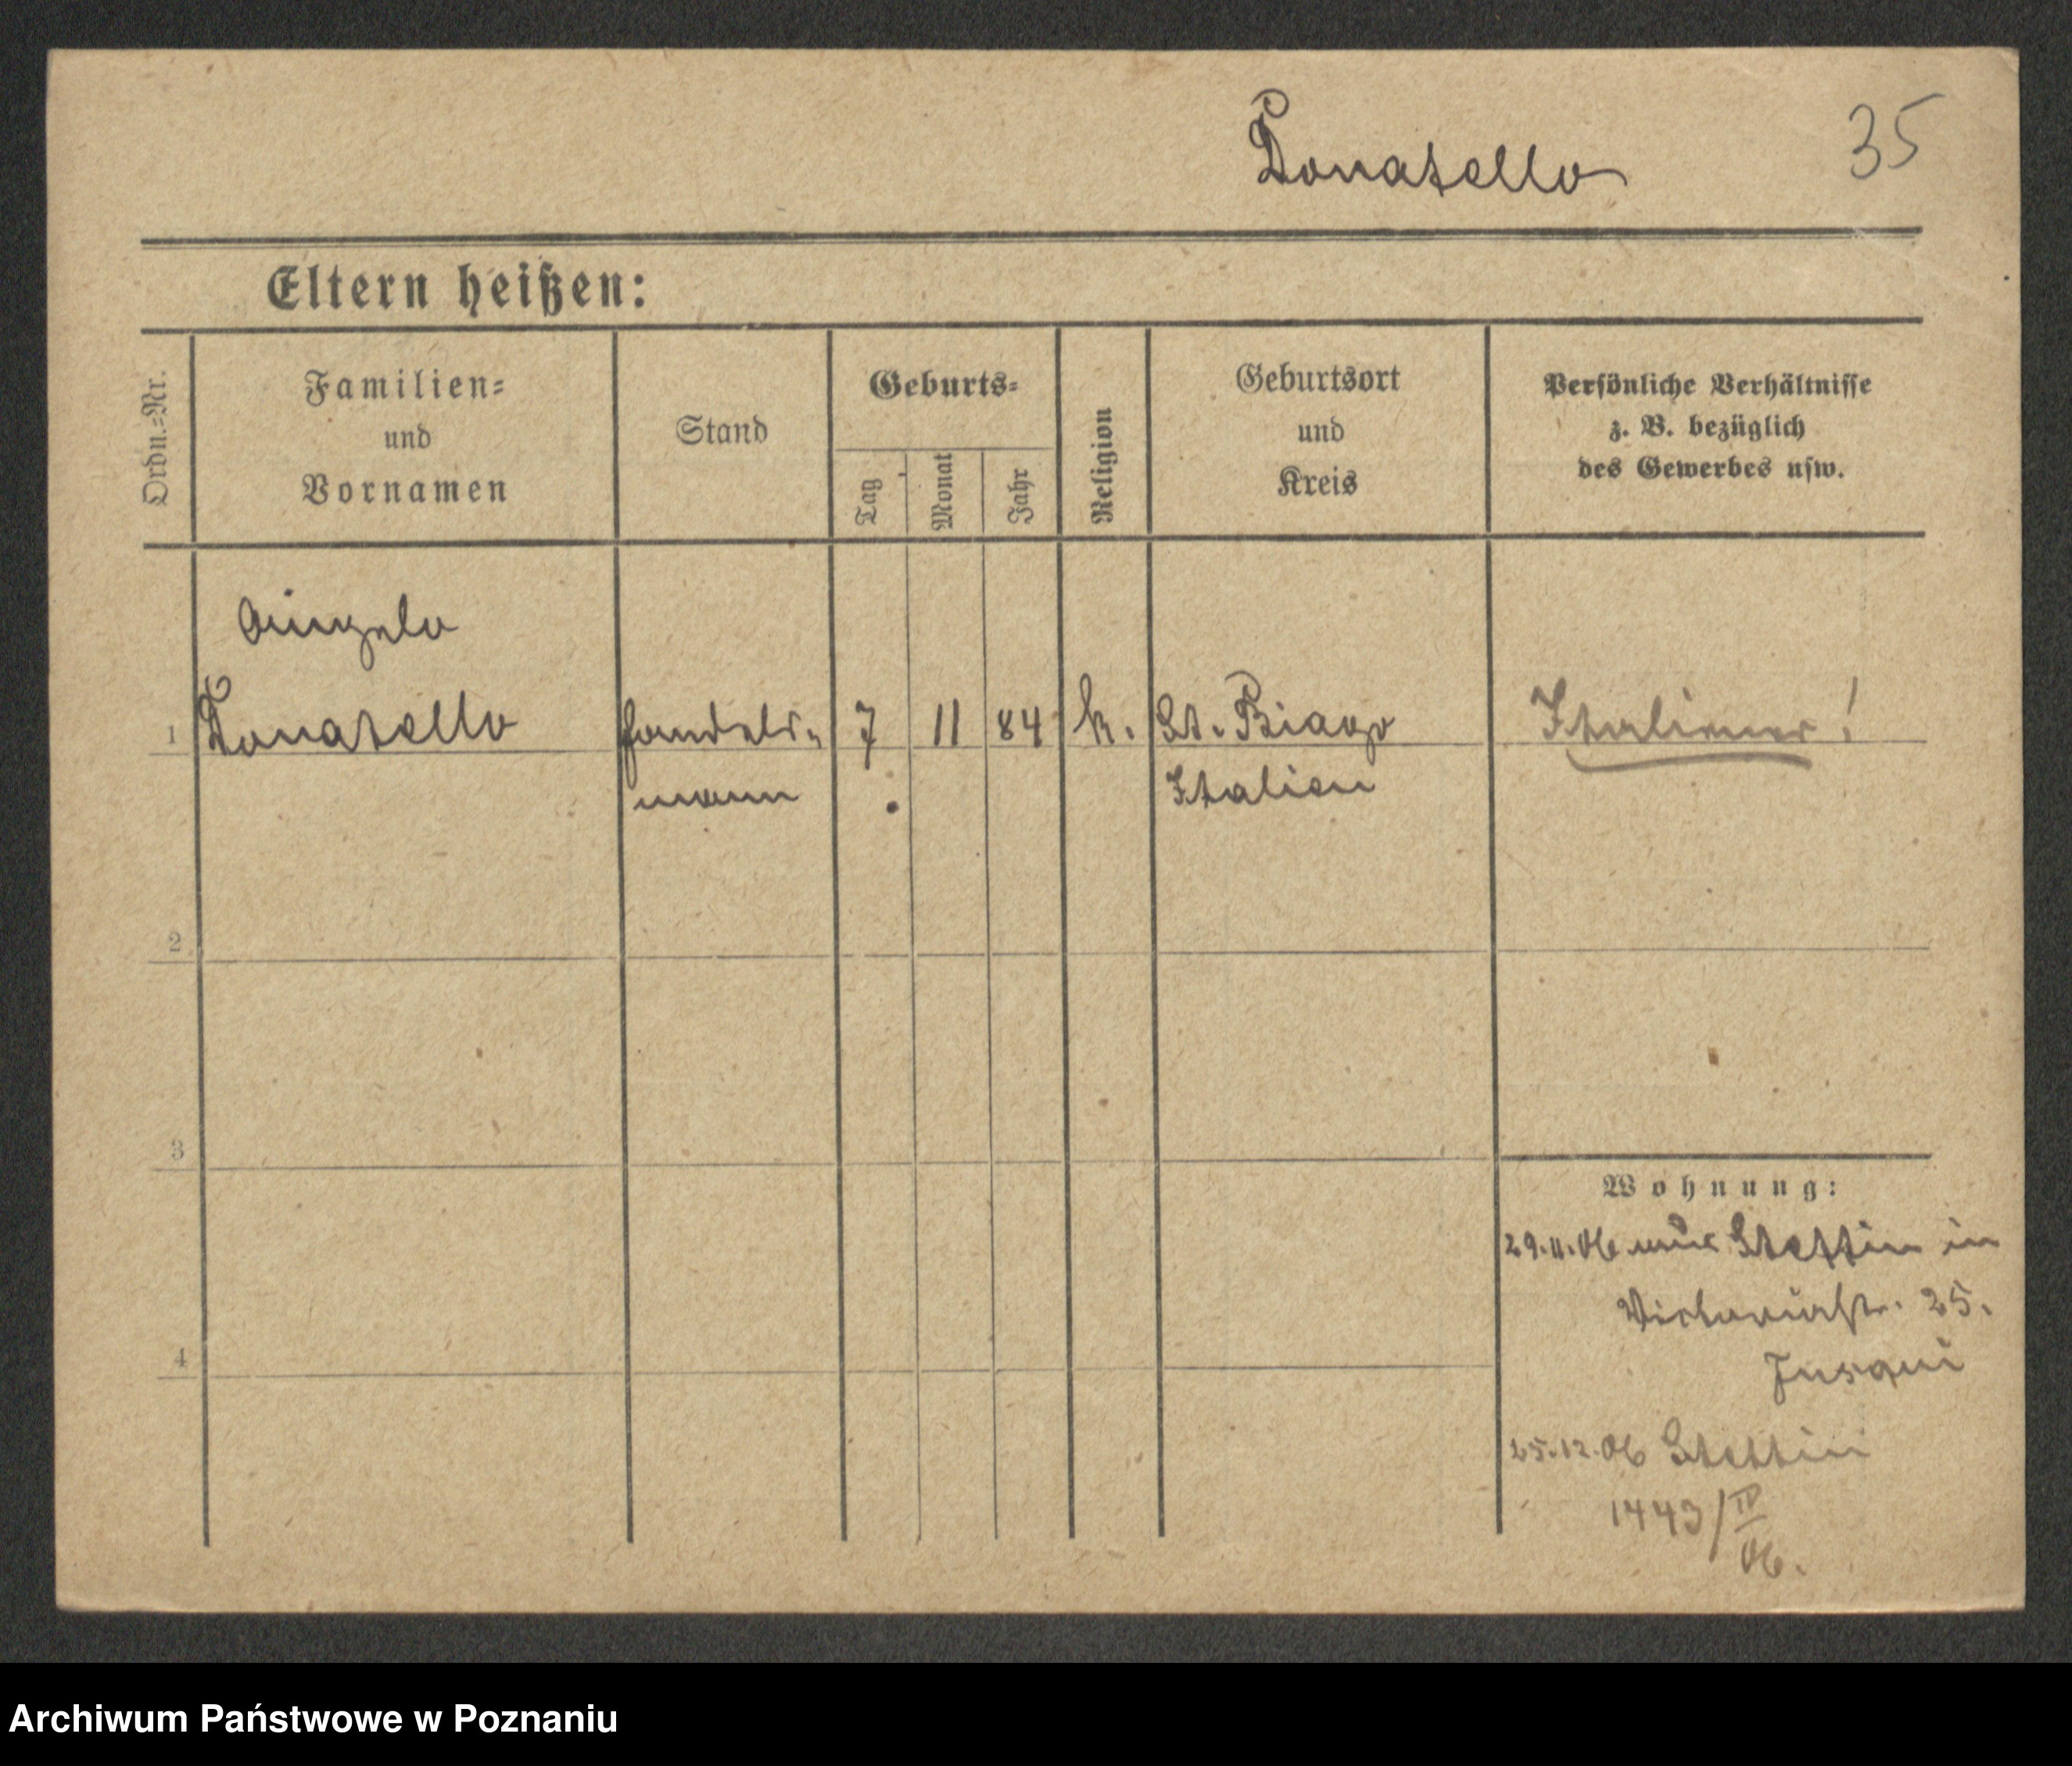 Donatello
35
Eltern heißen:
Ordn.-Nr.
Familien-
und
Vornamen
Stand
Geburts-
Tag
Monat
Jahr
Religion
Geburtsort
und
Kreis
Persönliche Verhältnisse
z. B. bezüglich
des Gewerbes usw.
Angelo
1 Donatello Handels- 7 11 84 k. St. Biago Italiener!
mann Italien
2
3
Wohnung:
29.11.06 aus Stettin in
Victoriastr. 25.
4
25.12.06 Stettin
1443/IV
06.
Archiwum Państwowe w Poznaniu